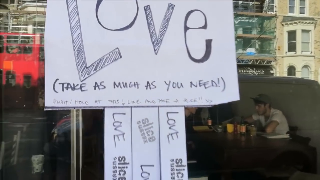 Love
(TAKE AS MUCH AS YOU NEED!)
LOVE
LOVE
LOVE
slice
slice
slice